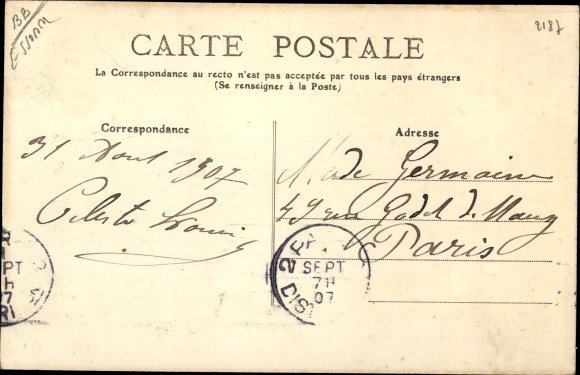 BB
2187
CARTE POSTALE
La Correspondance au recto n'est pas acceptée par tous les pays étrangers
(Se renseigner à la Poste)
Correspondance
31 Aout 1907
Adresse
Made Germaine
49 rue Godot de Mauroy
Paris
2E
SEPT
7H
07
DIST